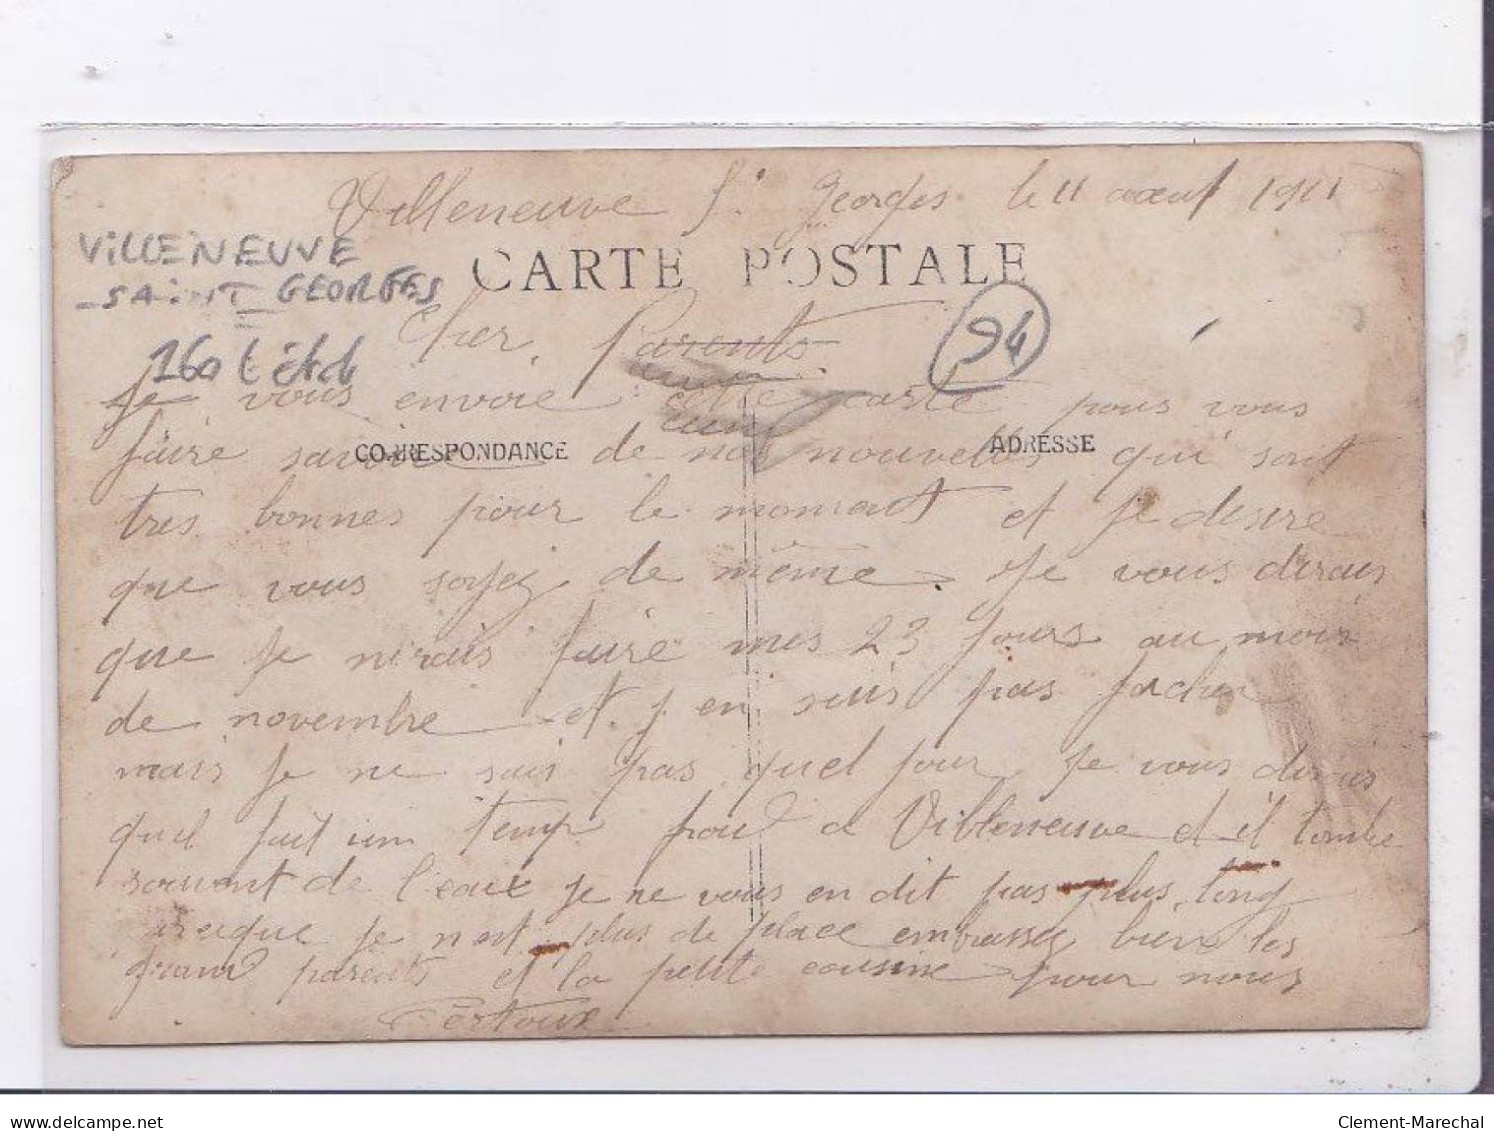 Villeneuve St Georges le 11 aoeut 1911
VILLENEUVE
SAINT GEORGES
CARTE POSTALE
Cher Parents
94
160
Je vous envoie cette carte pous vous
CORRESPONDANCE
ADRESSE
faire savoir de nos nouvelles qui sont
tres bonnes pour le moment et je desire
que vous soyez de même. Je vous dirais
que je nirais faire mes 23 jours au mois
de novembre et j en suis pas facher
mais je ne sais pas quel jour je vous dirais
quil fait un temp a Villeneuve et il tombe
souvent de l'eaux je ne vous en dit pas plus long
que je n ait plus de place embrassez bien les
grand parents et la petite cousine pour nous